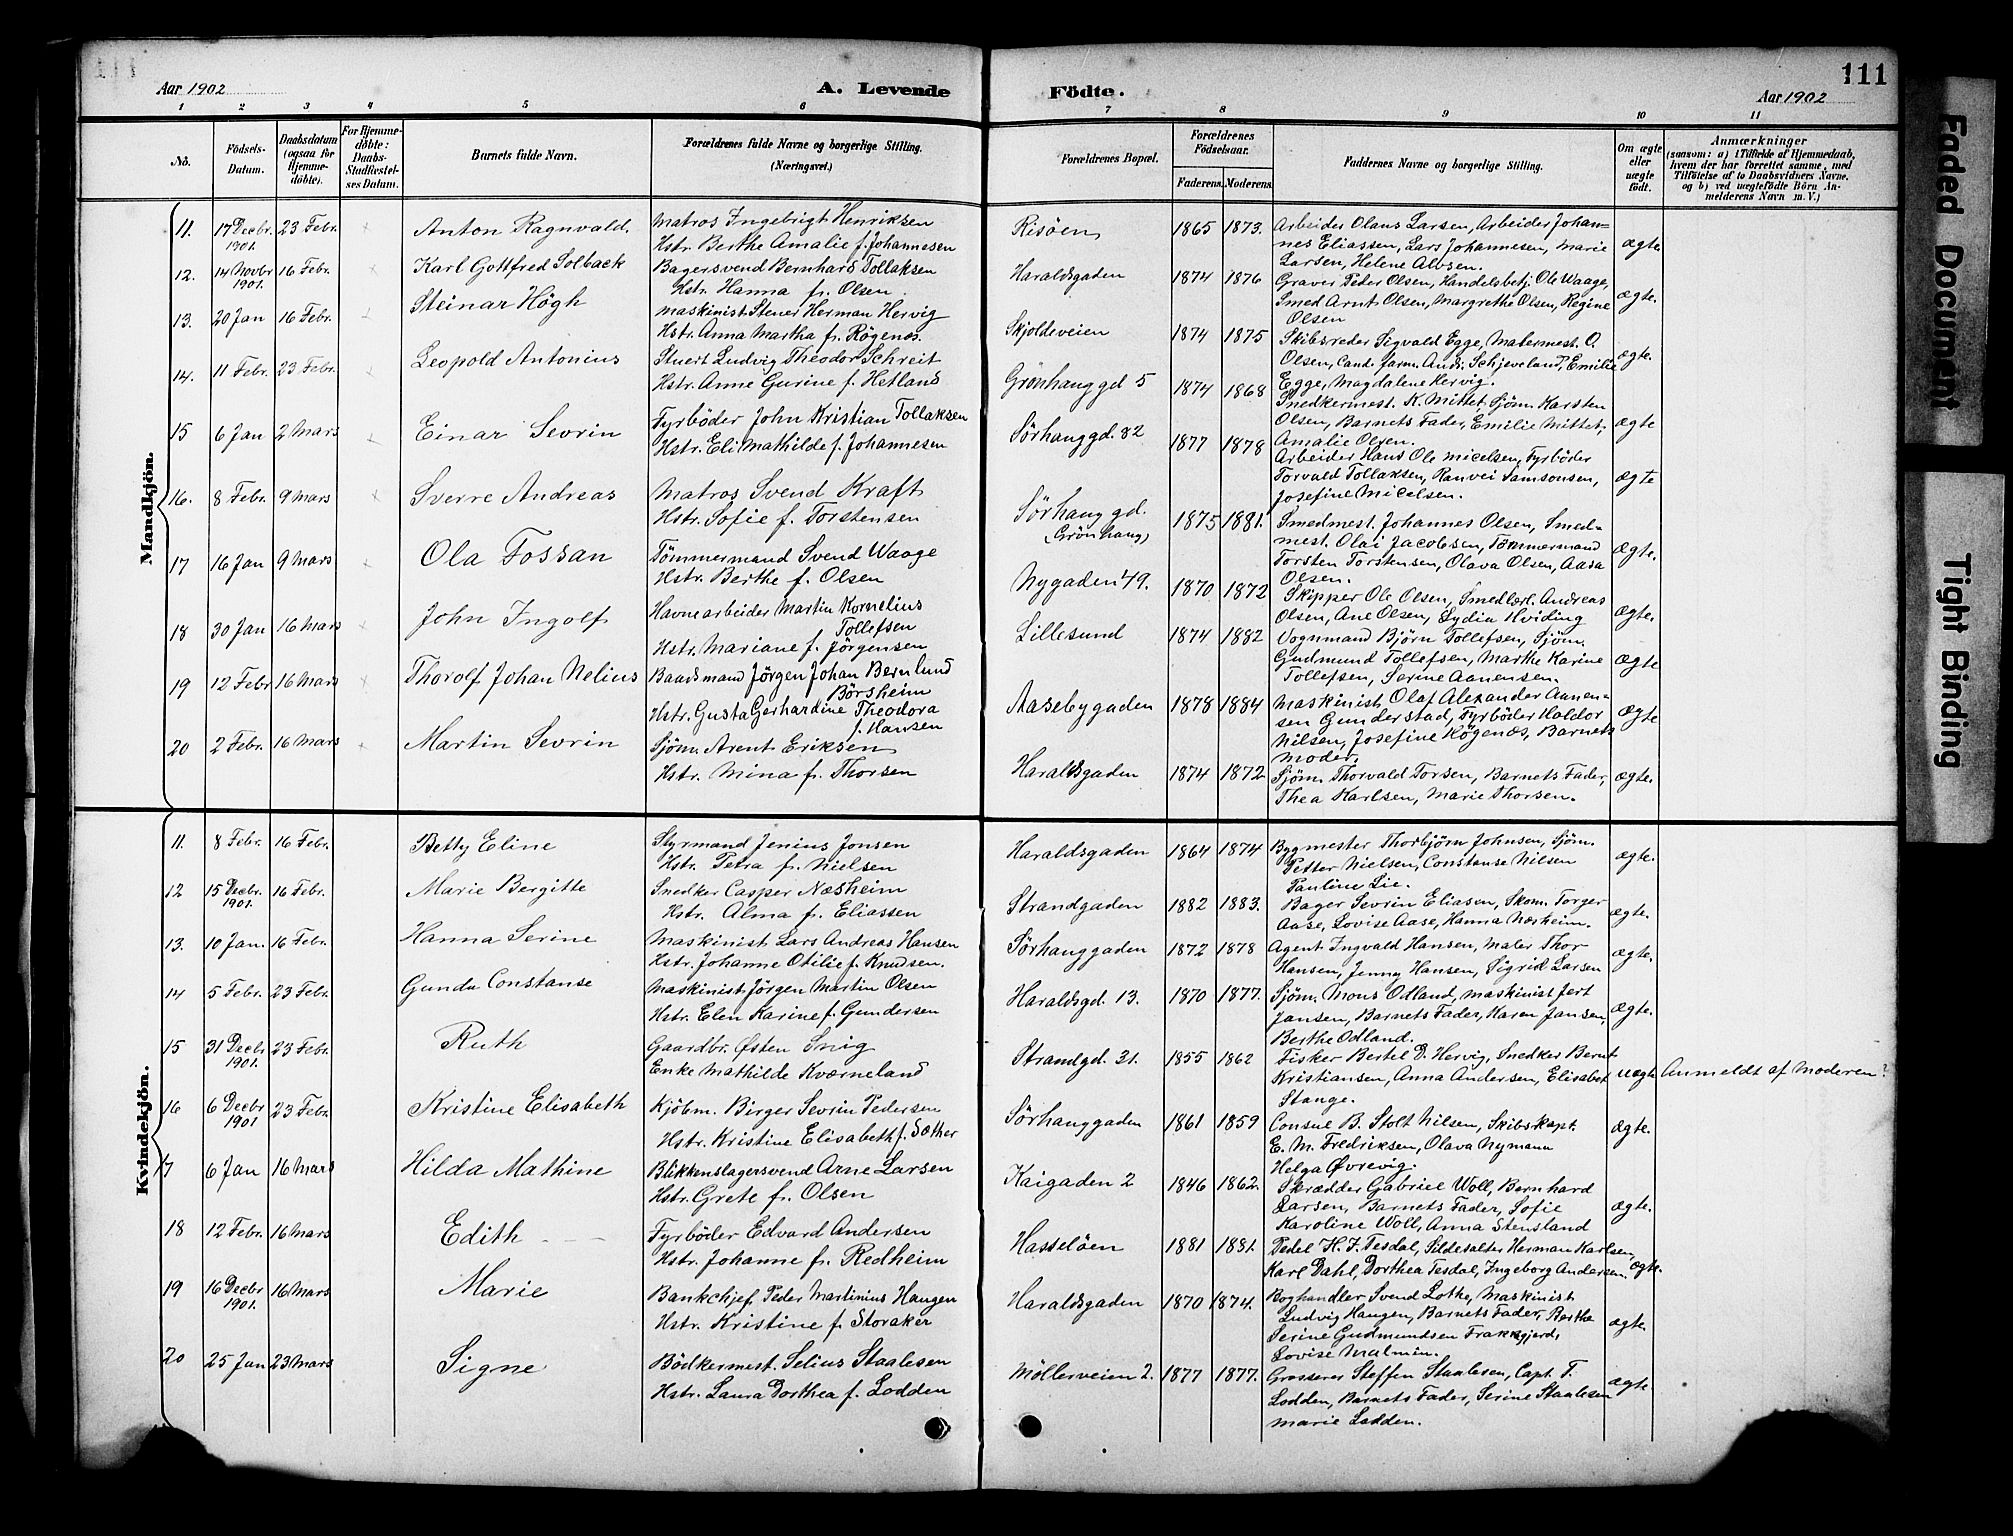 Aar 1902
A. Levende
Födte.
Aar 1902
111
Faded Document
Tight Binding
1 2 3 4 5 6 7 8 9 10 11
No.
Födsels-Datum.
Daabsdatum (ogsaa for Hjemmedöbte).
For Hjemmedöbte: Daabs-Stadfæstelses Datum.
Barnets fulde Navn.
Forældrenes fulde Navne og borgerlige Stilling. (Næringsvei.)
Forældrenes Bopæl.
Forældrenes Födselsaar.
Faderens. Moderens.
Faddernes Navne og borgerlige Stilling.
Om ægte eller uægte födt.
Anmærkninger
(saasom: a) i Tilfælde af Hjemmedaab, hvem der har forrettet samme, med Tilföielse af to Daabsvidners Navne, og b) ved uægtefödte Börn Anmelderens Navn m. V.)
Mandkjön.
11. 17 Decbr. 1901. 23 Febr. Anton Ragnvald. Matros Ingebrigt Henriksen
Hstr. Berthe Amalie f. Johannesen
Risöen 1865 1873. Arbeider Olaus Larsen, Arbeider Johan=
nes Eliassen, Lars Johannesen, Marie
Larsen, Helene Albsen. ægte
12. 14 Novbr 1901. 16 Febr. Karl Gottfred Solback Bagersvend Bernhard Tollaksen
Hstr. Hanna f. Olsen.
Haraldsgaden 1874 1876 Graver Peder Olsen, Handelsbetj. Ole Waage,
Smed Arnt Olsen, Margrethe Olsen, Regine
Olsen ægte.
13. 20 Jan 16 Febr. Steinar Högh Maskinist Stener Herman Hervig
Hstr. Anna Martha f. Rögenæs.
Skjoldeveien 1874 1875 Skibsreder Sigvald Egge, Malermest. O.
Olsen, Cand. farm. Andr. Schjeveland, Emilie
Egge, Magdalene Hervig. ægte.
14. 11 Febr. 23 Febr. Leopold Antonius Stuert Ludvig Theodor Schreit
Hstr. Anne Gurine f. Hetland
Grönhauggd 5 1874 1868 Snedkermest. K. Mittet, Sjöm. Karsten
Olsen, Barnets Fader, Emilie Mittet,
Amalie Olsen. ægte
15 6 Jan 2 Mars Einar Sevrin Fyrböder John Kristian Tollaksen
Hstr. Eli Mathilde f. Johannesen
Sörhauggd. 82 1877 1878 Arbeider Hans Ole Micelsen, Fyrböder
Torvald Tollaksen, Ranvei Samsonsen,
Josefine Micelsen. ægte
16. 8 Febr. 9 Mars Sverre Andreas Matros Svend Kraft
Hstr. Sofie f. Torstensen
Sörhauggd. (Grönhaug) 1875 1881. Smedmest. Johannes Olsen, Smed=
mest. Olai Jacobsen, Tömmermand
Torsten Torstensen, Olava Olsen, Aasa
Olsen. ægte.
17 16 Jan 9 Mars Ola Fossan Tömmermand Svend Waage
Hstr. Berthe f. Olsen
Nygaden 49. 1870 1872 Skipper Ole Olsen, Smedlærl. Andreas
Olsen, Ane Olsen, Lydia Hviding ægte.
18 30 Jan 16 Mars John Ingolf Havnearbeider Martin Kornelius
Tollefsen
Hstr. Mariane f. Jörgensen
Lillesund 1874 1882 Vognmand Bjørn Tollefsen, Sjöm.
Gudmund Tollefsen, Marthe Karine
Tollefsen, Serine Aanensen. ægte
19 12 Febr 16 Mars Thorolf Johan Nelius Baadsmand Jörgen Johan Bernlund
Börsheim
Hstr. Gusta Gerhardine Theodora
f. Hansen
Aasebygaden 1878 1884 Maskinist Olaf Alexander Aanen=
sen Gunderstad, Fyrböder Haldor
Nilsen, Josefine Rögenæs, Barnets
Moder. ægte
20 2 Febr. 16 Mars Martin Sevrin Sjöm. Arent Eriksen
Hstr. Mina f. Thorsen
Haraldsgaden 1874 1872 Sjöm. Thorvald Torsen, Barnets Fader,
Thea Karlsen, Marie Thorsen. ægte.
Kvindekjön.
11. 8 Febr. 16 Febr. Betty Eline Styrmand Jenius Jonsen
Hstr. Petra f. Nielsen
Haraldsgaden 1864 1874 Bygmester Thorbjörn Johnsen, Sjöm.
Petter Nielsen, Constanse Nilsen
Pauline Lie. ægte.
12 15 Decbr. 1901. 16 Febr. Marie Bergitte Snedker Casper Næsheim
Hstr. Alma f. Eliassen
Strandgaden 1882 1883. Bager Sevrin Eliasen, Skom. Torger
Aase, Lovise Aase, Hanna Næsheim. ægte.
13. 10 Jan. 16 Febr. Hanna Serine Maskinist Lars Andreas Hansen
Hstr. Johanne Otilie f. Knudsen.
Sörhauggaden 1872 1878 Agent Ingvald Hansen, Maler Thor
Hansen, Jenny Hansen, Sigrid Larsen ægte.
14 5 Febr. 23 Febr. Gunda Constanse Maskinist Jörgen Martin Olsen
Hstr. Elen Karine f. Gundersen
Haraldsgd. 13. 1870 1877. Sjöm. Mons Odland, Maskinist Jert
Jansen, Barnets Fader, Karen Jansen,
Berthe Odland. ægte.
15 31 Decbr 1901. 23 Febr. Ruth Gaardbr. Østen Snig
Enke Mathilde Kværneland
Strandgd. 31. 1855 1862 Fisker Bertel D. Hervig, Snedker Bernt
Kristiansen, Anna Andersen, Elisabet
Stange. uægte Anmeldt af Moderen.
16 6 Decbr 1901 23 Febr. Kristine Elisabeth Kjöbm. Birger Sevrin Pedersen
Hstr. Kristine Elisabeth f. Sæther
Sörhauggaden 1861 1859 Consul B. Stolt Nilsen, Skibskapt.
E. M. Fredriksen, Olava Nymann
Helga Øvrevig. ægte.
17 6 Jan 16 Mars Hilda Mathine Blikkenslagersvend Arne Larsen
Hstr. Grete f. Olsen
Kaigaden 2 1846 1862. Skrædder Gabriel Woll, Bernhard
Larsen, Barnets Fader, Sofie
Karoline Woll, Anna Stensland ægte.
18 12 Febr. 16 Mars Edith Fyrböder Edvard Andersen
Hstr. Johanne f. Redheim
Hasselöen 1881 1881. Pedel H. J. Tesdal, Sildesalter Herman Karlsen,
Karl Dahl, Dorthea Tesdal, Ingeborg Andersen. ægte.
19 16 Decbr 1901. 16 Mars Marie Bankchjef Peder Martinius Haugen
Hstr. Kristine f. Storaker
Haraldsgaden 1870 1874. Boghandler Svend Lothe, Maskinist
Ludvig Haugen, Barnets Fader, Berthe
Serine Gudmundsen Frakkagjerd,
Lovise Malmin. ægte.
20 25 Jan 23 Mars Signe Bödkermest. Selius Staalesen
Hstr. Laura Dorthea f. Lodden
Möllerveien 2. 1877 1877. Grosserer Steffen Staalesen, Capt. T.
Lodden, Barnets Fader, Serine Staalesen
Marie Lodden. ægte.